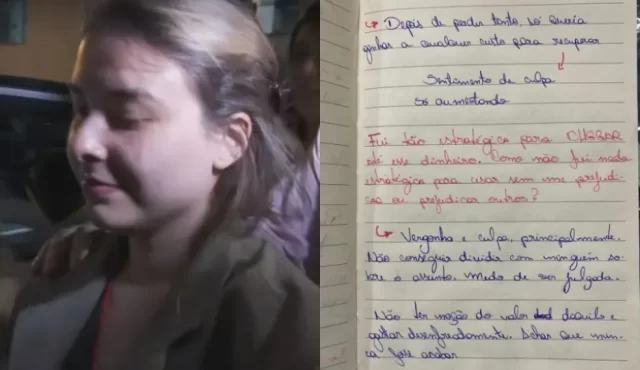 ↳ Depois de perder tanto, só queria
ganhar a qualquer custo para recuperar
Sentimento de culpa
só aumentando
Fui tão estratégica para CHEGAR
até esse dinheiro. Como não fui nada
estratégica para usar sem me prejudi-
car ou prejudicar outros?
↳ Vergonha e culpa, principalmente.
Não conseguir dividir com ninguém so-
bre o assunto. Medo de ser julgada.
Não ter noção do valor daquilo e
gastar desenfreadamente. Achar que nun-
ca fosse acabar